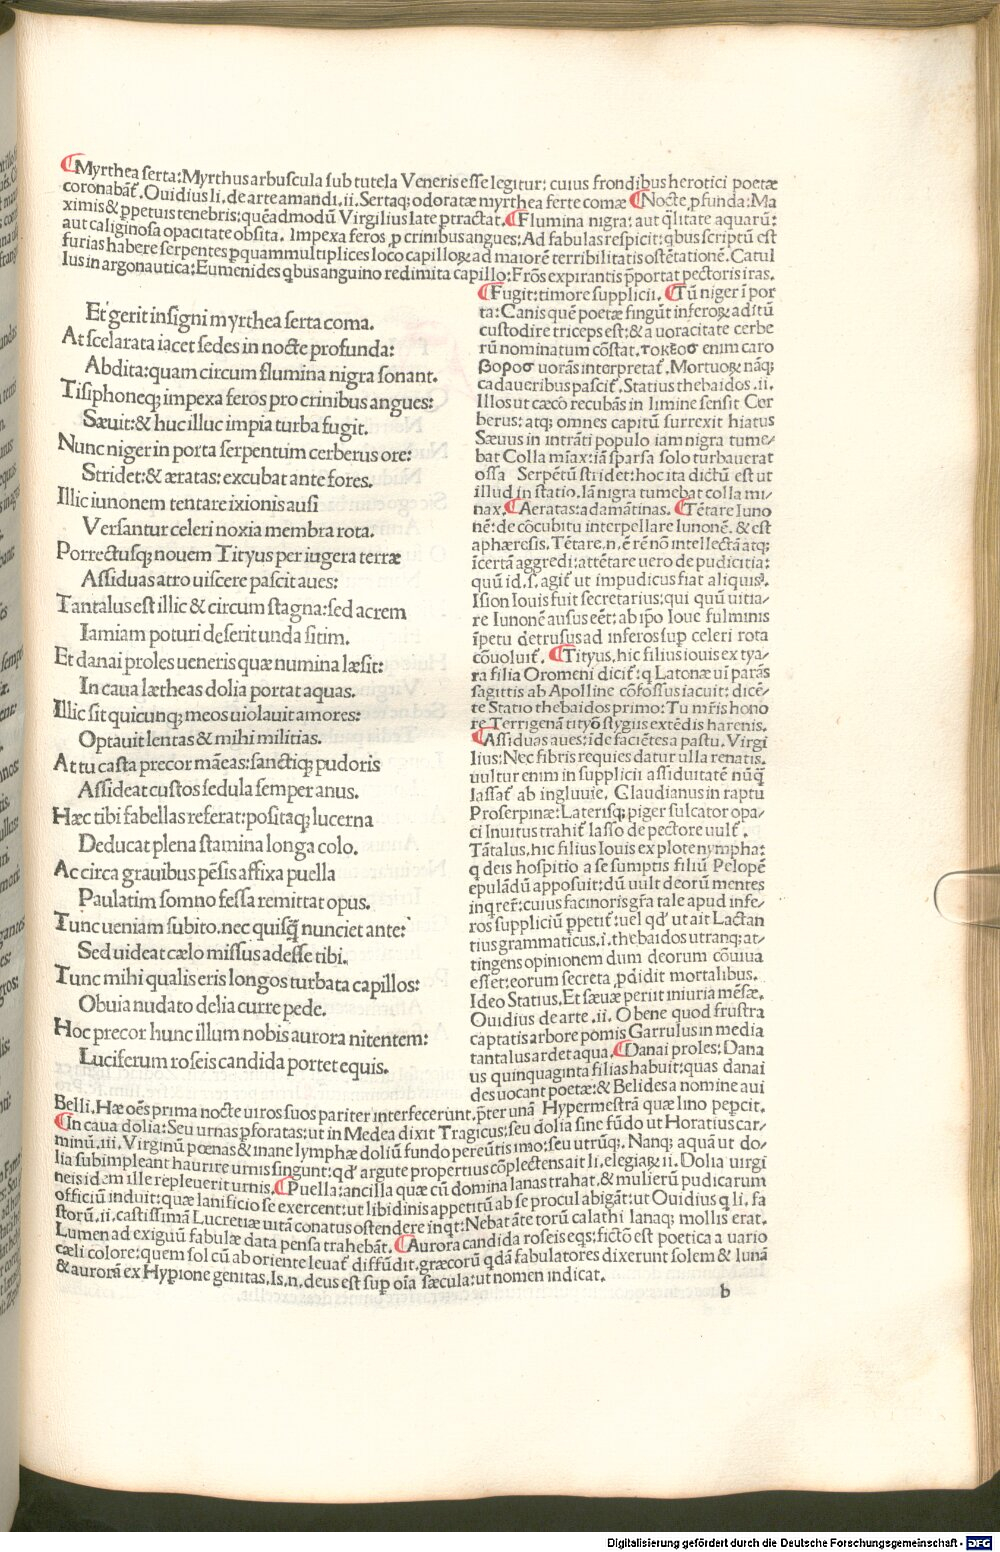 ¶Myrthea serta:Myrthus arbuscula sub tutela Veneris esse legitur: cuius frondibus herotici poetæ
coronabãt̃. Ouidius li. de arte amandi. ii. Sertaq; odoratæ myrthea ferte comæ ¶Nocte ꝓfunda: Ma
ximis & ꝑpetuis tenebris: quẽadmodũ Virgilius late ꝑtractat. ¶Flumina nigra: aut q̃litate aquarũ:
aut caliginosa opacitate obsita. Impexa feros ꝓ crinibus angues: Ad fabulas respicit: qbus scriptũ est
furias habere serpentes ꝑquam multiplices loco capilloꝝ ad maiorẽ terribilitatis ostẽtationẽ. Catul
lus in argonautica: Eumenides qbus anguino redimita capillo: Frõs expirantis p̃portat pectoris iras.
Et gerit insigni myrthea serta coma.
At scelarata iacet sedes in nocte profunda:
Abdita: quam circum flumina nigra sonant.
Tisiphoneq; impexa feros pro crinibus angues:
Sæuit: & huc illuc impia turba fugit.
Nunc niger in porta serpentum cerberus ore:
Stridet: & æratas: excubat ante fores.
Illic iunonem tentare ixionis ausi
Versantur celeri noxia membra rota.
Porrectusq; nouem Tityus per iugera terræ
Assiduas atro uiscere pascit aues:
Tantalus est illic & circum stagna: sed acrem
Iamiam poturi deserit unda sitim.
Et danai proles ueneris quæ numina læsit:
In caua lætheas dolia portat aquas.
Illic sit quicunq; meos uiolauit amores:
Optauit lentas & mihi militias.
At tu casta precor mãeas: sanctiq; pudoris
Assideat custos sedula semper anus.
Hæc tibi fabellas referat: positaq; lucerna
Deducat plena stamina longa colo.
Ac circa grauibus pẽsis affixa puella
Paulatim somno fessa remittat opus.
Tunc ueniam subito. nec quisq̃ nunciet ante:
Sed uideat cælo missus adesse tibi.
Tunc mihi qualis eris longos turbata capillos:
Obuia nudato delia curre pede.
Hoc precor hunc illum nobis aurora nitentem:
Luciferum roseis candida portet equis.
¶Fugit: timore supplicii. ¶Tũ niger ĩ por
ta: Canis quẽ poetæ fingũt inferoꝝ aditũ
custodire triceps est: & a uoracitate cerbe
rũ nominatum cõstat. τοκεοσ enim caro
βοροσ uorãs interpretat̃. Mortuoꝝ nãq;
cadaueribus pascit̃. Statius thebaidos .ii.
Illos ut cæco recubãs in limine sensit Cer
berus: atq; omnes capitũ surrexit hiatus
Sæuus in intrãti populo iam nigra tume⸗
bat Colla mĩax: iã sparsa solo turbauerat
ossa Serpẽtũ stridet: hoc ita dictũ est ut
illud in statio. Iã nigra tumebat colla mi⸗
nax. ¶Aeratas: adamãtinas. ¶Tẽtare Iuno
nẽ: de cõcubitu interpellare Iunonẽ. & est
aphæresis. Tẽtare .n. ẽ rẽ nõ intellectã atq;
ĩcertã aggredi: attẽtare uero de pudicitia:
quũ id .s. agit̃ ut impudicus fiat aliquis.
Ision Iouis fuit secretarius: qui quũ uitia⸗
re Iunonẽ ausus eẽt: ab ip̃o Ioue fulminis
ĩpetu detrusus ad inferos sup celeri rota
cõuoluit̃. ¶Tityus. hic filius iouis ex tya⸗
ra filia Oromeni dicit̃: q Latonæ uĩ parãs
sagittis ab Apolline cõfossus iacuit: dicẽ⸗
te Statio thebaidos primo: Tu mr̃is hono
re Terrigenã tityõ stygiis extẽdis harenis.
¶Assiduas aues: ĩde faciẽtes a pastu. Virgi
lius: Nec fibris requies datur ulla renatis.
uultur enim in supplicii assiduitatẽ nũq̃
lassat̃ ab ingluuie. Claudianus in raptu
Proserpinæ: Laterisq; piger sulcator opa⸗
ci Inuitus trahit̃ lasso de pectore uult̃.
Tãtalus. hic filius Iouis ex plote nympha:
q deis hospitio a se sumptis filiũ Pelopẽ
epulãdũ apposuit: dũ uult deorũ mentes
inqrer̃: cuius facinoris gr̃a tale apud infe⸗
ros suppliciũ ꝑpetit̃: uel qd' ut ait Lactan
tius grammaticus .i. thebaidos utranq; at⸗
tingens opinionem dum deorum cõuiua
esset: eorum secreta ꝓdidit mortalibus.
Ideo Statius. Et sæuæ periit iniuria mẽsæ.
Ouidius de arte .ii. O bene quod frustra
captatis arbore pomis Garrulus in media
tantalus ardet aqua. ¶Danai proles: Dana
us quinquaginta filias habuit: quas danai
des uocant poetæ: & Belides a nomine aui
Belli. Hæ oẽs prima nocte uiros suos pariter interfecerunt. p̃ter unã Hypermestrã quæ lino peꝑcit.
¶In caua dolia: Seu urnas ꝑforatas: ut in Medea dixit Tragicus: seu dolia sine fũdo ut Horatius car⸗
minũ .iii. Virginũ pœnas & inane lymphæ doliũ fundo pereũtis imo: seu utrũq;. Nanq; aquã ut do⸗
lia subimpleant haurire urnis singunt: qd' argute propertius cõplectens ait li. elegiaꝝ ii. Dolia uirgi
neis idem ille repleuerit urnis. ¶Puella: ancilla quæ cũ domina lanas trahat. & mulierũ pudicarum
officiũ induit: quæ lanificio se exercent: ut libidinis appetitũ ab se procul abigãt: ut Ouidius q li. fa
storũ .ii. castissimã Lucretiæ uitã conatus ostendere inqt: Nebat ãte torũ calathi lanaq; mollis erat.
Lumen ad exiguũ fabulæ data pensa trahebãt. ¶Aurora candida roseis eqs: fictõ est poetica a uario
cæli colore: quem sol cũ ab oriente leuat̃ diffũdit. græcorũ qdã fabulatores dixerunt solem & lunã
& aurorã ex Hyꝑione genitas. Is .n. deus est suꝑ oĩa sæcula: ut nomen indicat.
b
Digitalisierung gefördert durch die Deutsche Forschungsgemeinschaft - DFG